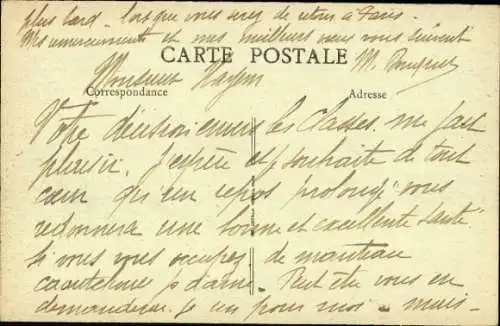 plus tard. lorsque vous serez de retour à Paris.
Mes remerciements et mes meilleurs vœux vous suivent
CARTE POSTALE
M.
Monsieur Hayem
Correspondance
Adresse
Votre décision envers les Classes. me fait
plaisir. J'espère et souhaite de tout
cœur qu'un repos prolongé vous
redonnera une bonne et excellente santé
Si vous vous occupez de manteau
caoutchouc p dame. Peut être vous en
demanderai je un pour moi - mais -